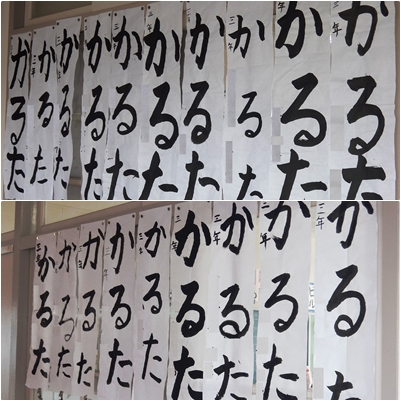 三年
かるた
三年
かるた
三年
かるた
かるた
かるた
かるた
かるた
三年
かるた
三年
かるた
かるた
三年
かるた
三年
かるた
三年
かるた
三年
かるた
かるた
かるた
かるた
かるた
三年
かるた